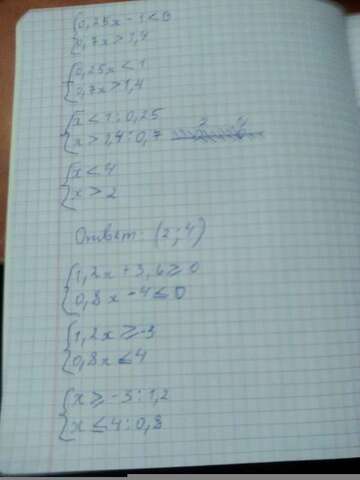 0,25x - 1 < 0
0,7x > 1,4
0,25x < 1
0,7x > 1,4
x < 1 : 0,25
x > 1,4 : 0,7
x < 4
x > 2
Ответ: (2; 4)
1,2x + 3,6 ≥ 0
0,8x - 4 ≤ 0
1,2x ≥ -3
0,8x ≤ 4
x ≥ -3 : 1,2
x ≤ 4 : 0,8